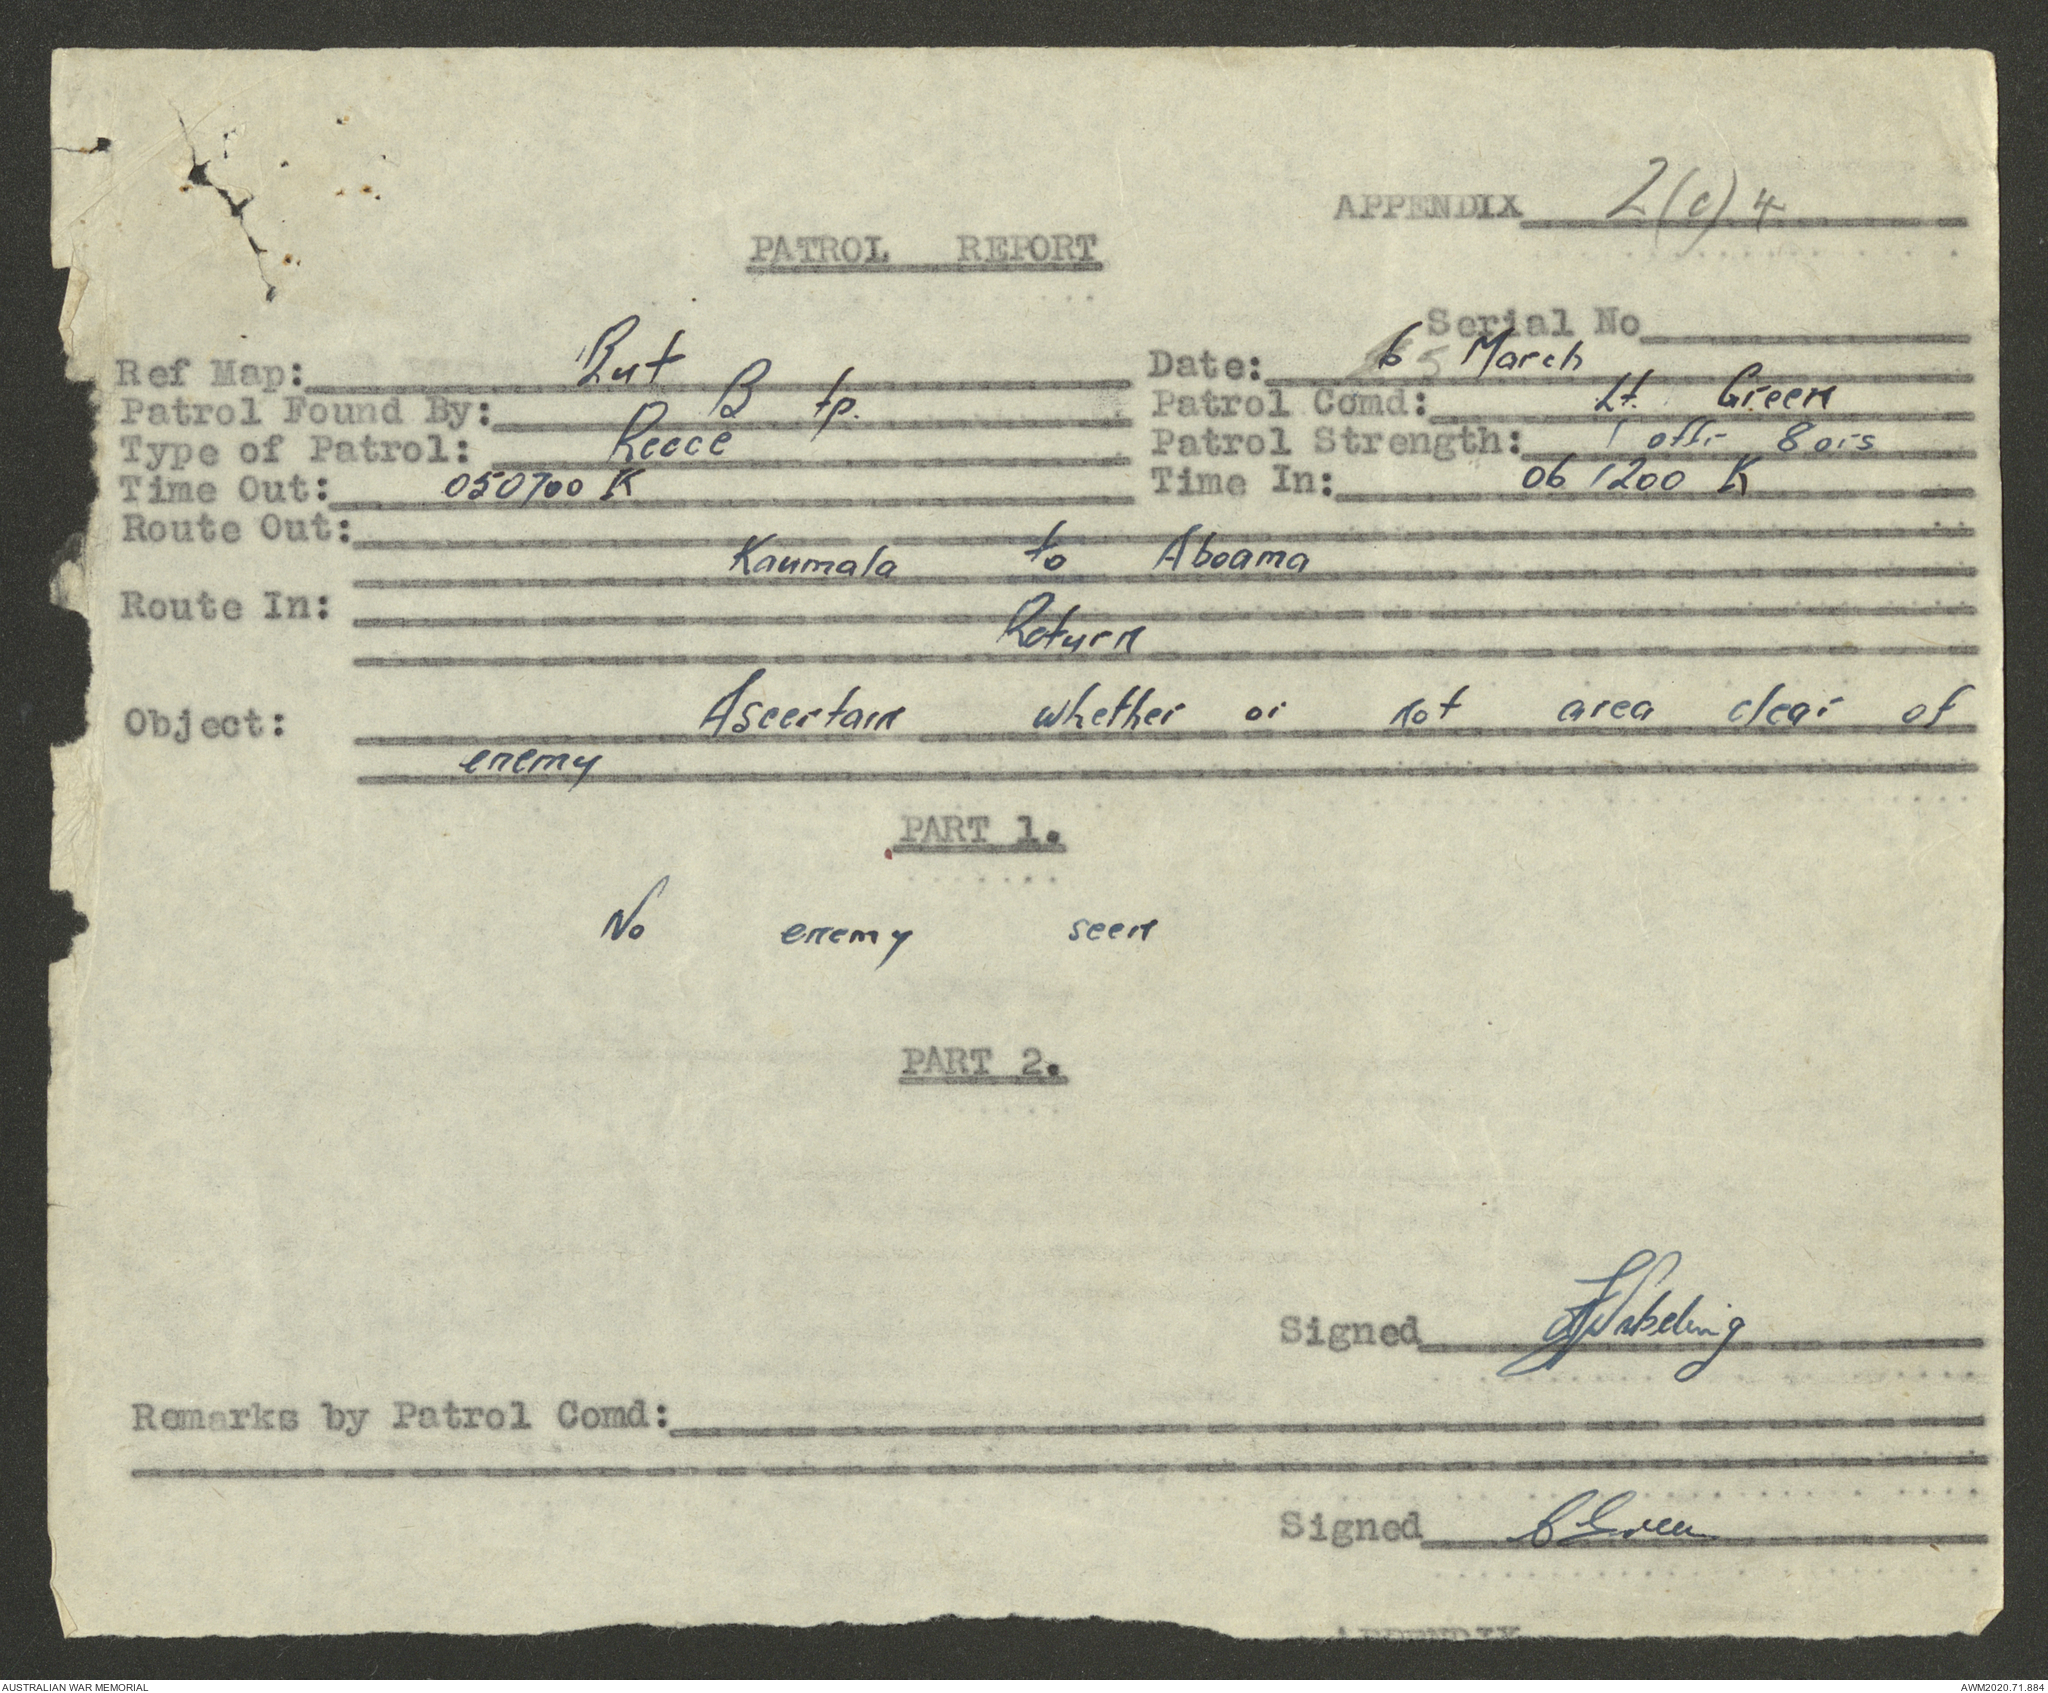 APPENDIX 2(c)4
PATROL REPORT
Serial No
Ref Map: But Date: 6 March
Patrol Found By: B tp. Patrol Comd: Lt. Green
Type of Patrol: Recce Patrol Strength: 1 offr 8 ors
Time Out: 050700 K Time In: 061200 K
Route Out:
Kaumala to Aboama
Route In:
Return
Object: Ascertain whether or not area clear of
enemy
PART 1.
No enemy seen
PART 2.
Signed
Remarks by Patrol Comd:
Signed C Green
APPENDIX
AUSTRALIAN WAR MEMORIAL AWM2020.71.884